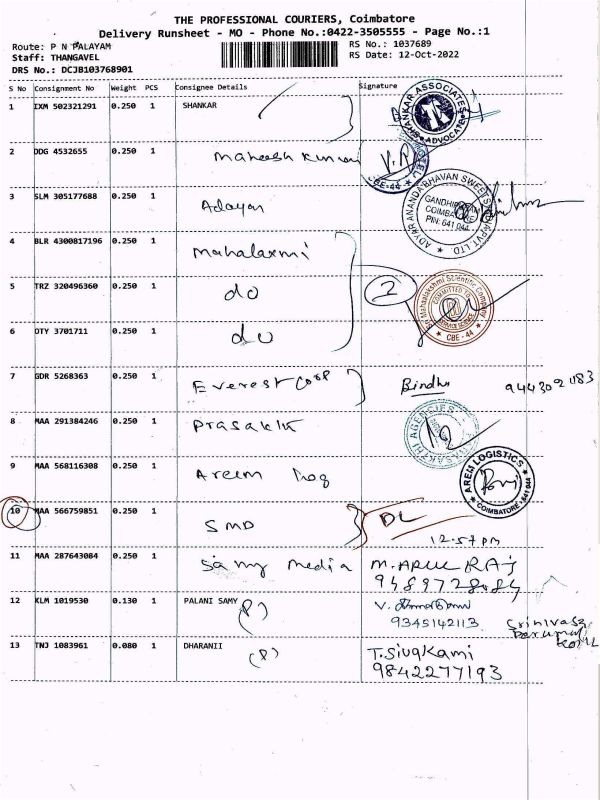 THE PROFESSIONAL COURIERS, Coimbatore
Delivery Runsheet - MO - Phone No.:0422-3505555 - Page No.:1
Route: P N PALAYAM
Staff: THANGAVEL
DRS No.: DCJB103768901
RS No.: 1037689
RS Date: 12-Oct-2022
S No Consignment No Weight PCS Consignee Details Signature
1 IXM 502321291 0.250 1 SHANKAR
SHANKAR ASSOCIATES ADVOCATE
2 DDG 4532655 0.250 1 Mahesh Kumar
CBE-44
3 SLM 305177688 0.250 1 Adayar
ADYAR ANANDA BHAVAN SWEETS GANDHIPURAM COIMBATORE PIN: 641 044 PVT. LTD.
4 BLR 4300817196 0.250 1 Mahalaxmi
5 TRZ 320496360 0.250 1 do 2
Sri Mahalakshmi Scientific Company COMMITTED TO SERVICE SCIENCE CBE - 44
6 OTY 3701711 0.250 1 do
7 GDR 5268363 0.250 1 Everest Corp Bindhu
8 MAA 291384246 0.250 1 Prasakth
AGENCIES
9 MAA 568116308 0.250 1 Areem log
AREM LOGISTICS COIMBATORE - 641 044
10 MAA 566759851 0.250 1 SMD DL
12.57pm
11 MAA 287643084 0.250 1 Samy media M. ARUL RAJ
9489728484
12 KLM 1019530 0.130 1 PALANI SAMY (P) V.
9345142113
Srinivasa
Perumal
Kovil
13 TNJ 1083961 0.080 1 DHARANII (P) T. Sivakami
9842277193